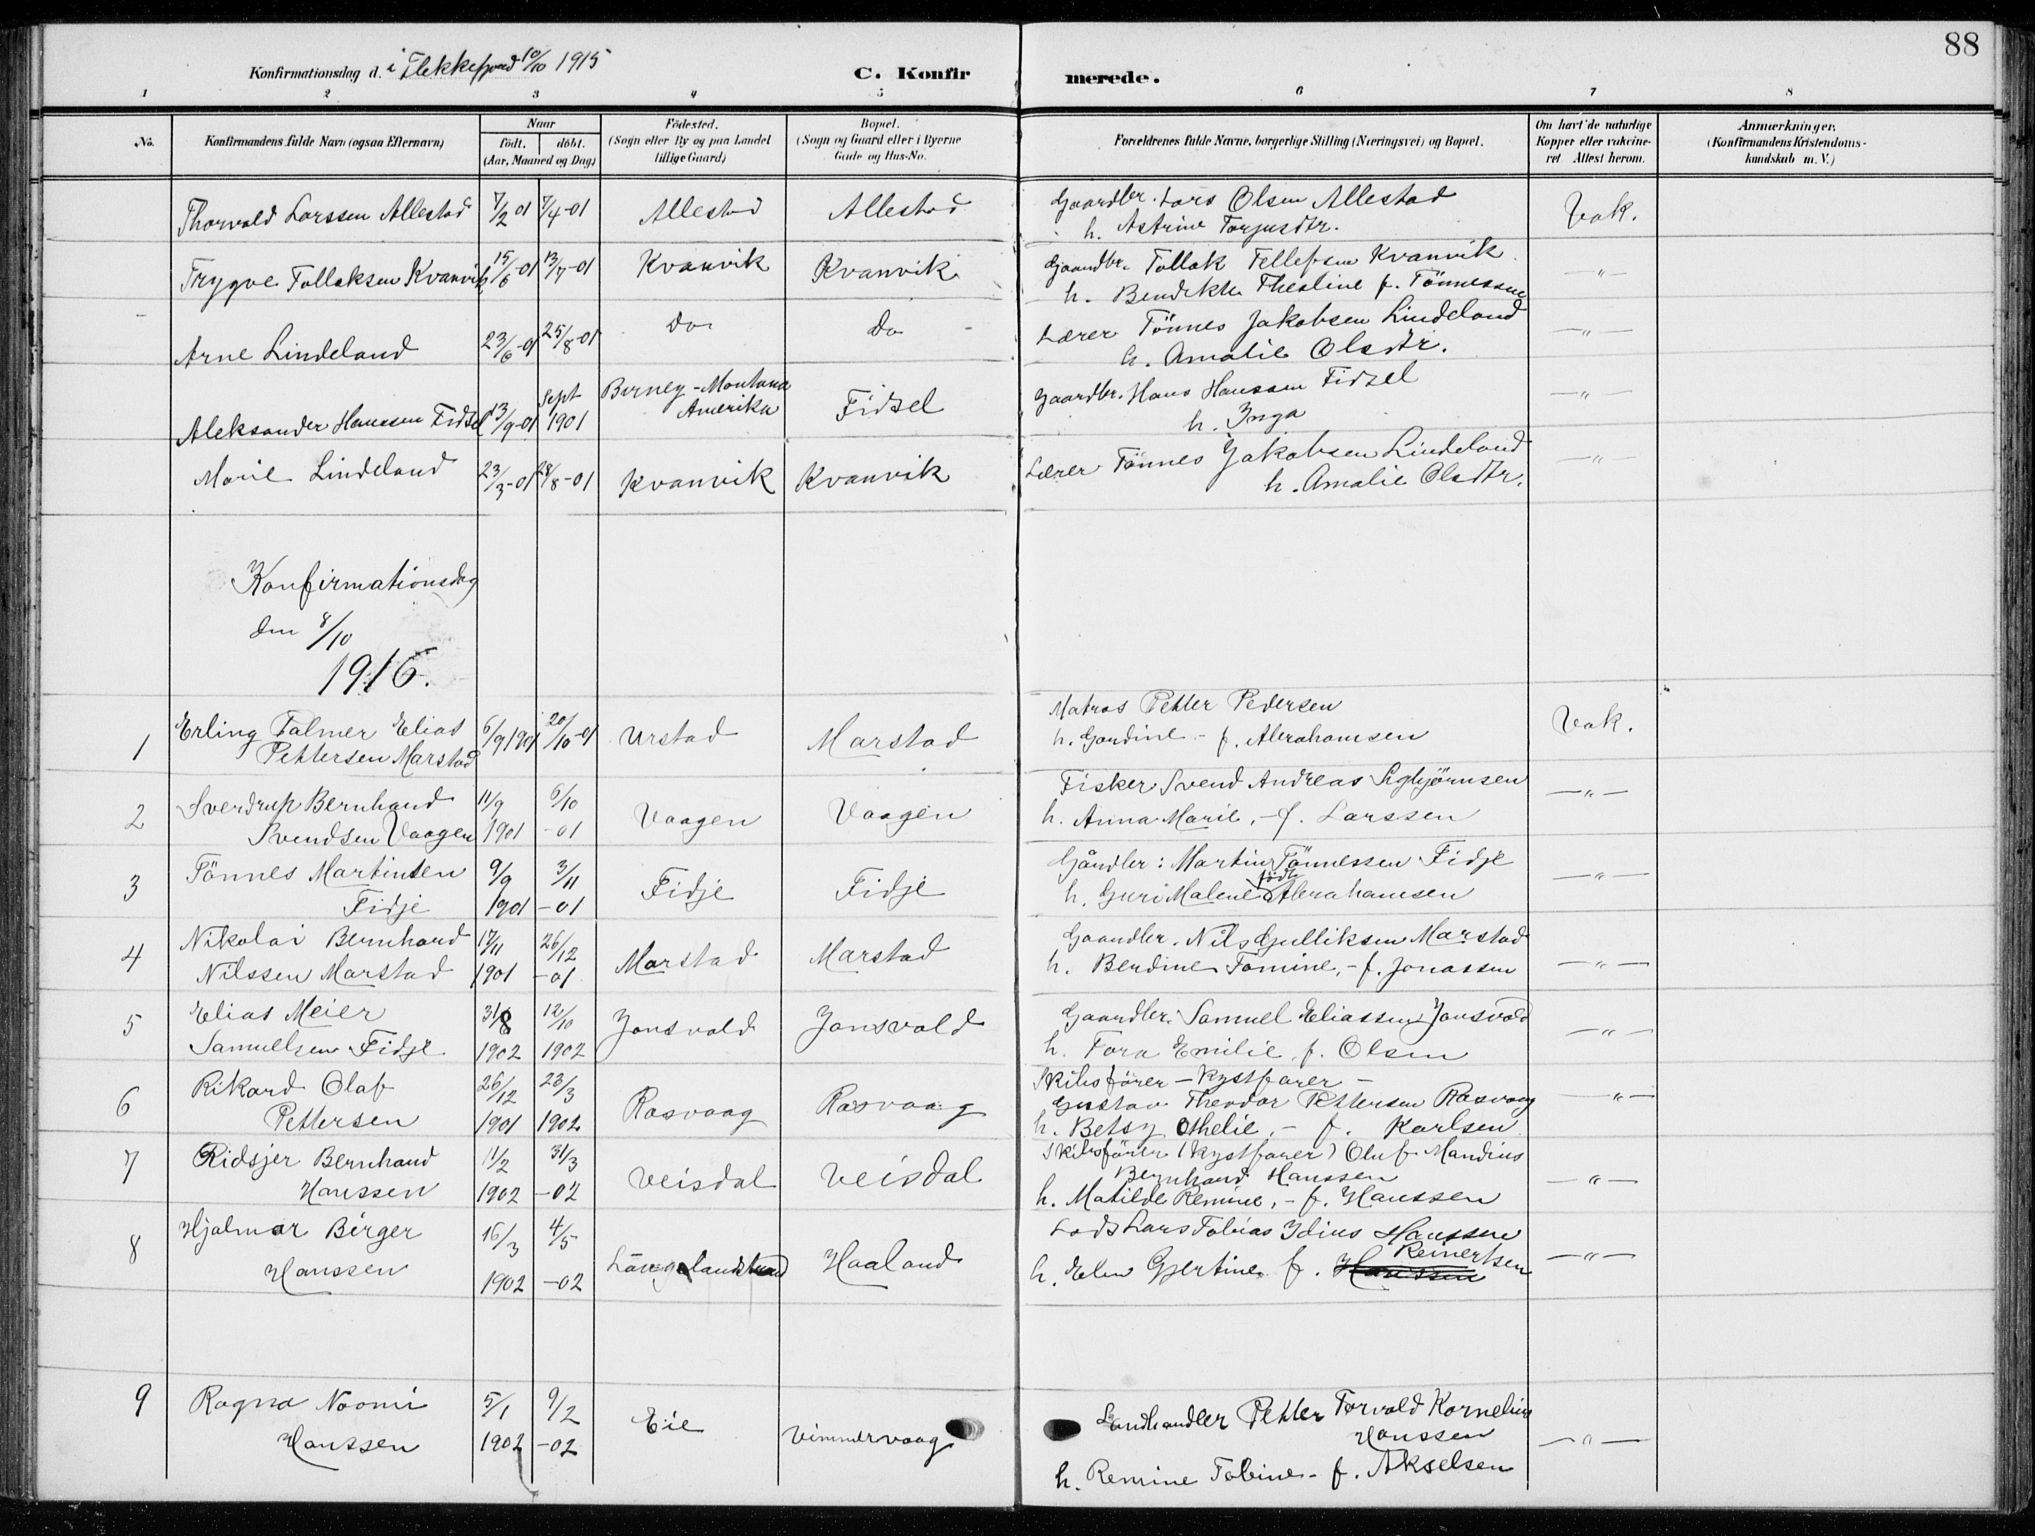 88
Konfirmationsdag d. i Flekkefjord 10/10 1915
C. Konfirmerede.
1 2 3 4 5 6 7 8
No.
Konfirmandens fulde Navn (ogsaa Efternavn)
Naar
født. døbt.
(Aar, Maaned og Dag)
Fødested.
(Sogn eller By og paa Landet
tillige Gaard)
Bopæl.
(Sogn og Gaard eller i Byerne
Gade og Hus-No.
Forældrenes fulde Navne, borgerlige Stilling (Næringsvei) og Bopæl.
Om havt de naturlige
Kopper eller vakcine-
ret Attest herom.
Anmærkninger.
(Konfirmandens Kristendoms-
kundskab m. V.)
Thorvald Larssen Allestad 7/2 01 7/4-01 Allestad Allestad Gaardbr. Lars Olsen Allestad Vak.
h. Astrine Torjusdtr.
Trygve Tollaksen Kvanvik 15/6-01 13/7-01 Kvanvik Kvanvik Gaardbr. Tollak Tellefsen Kvanvik -"-
h. Bendikte Thealine f. Tönnessen
Arne Lindeland 23/6-01 25/8-01 do do Lærer Tönnes Jakobsen Lindeland -"-
h. Amalie Olsdtr.
Aleksander Hanssen Fidsel 13/9-01 Sept 1901 Birney-Montana Amerika Fidsel Gaardbr. Hans Hanssen Fidsel -"-
h. Inga
Marie Lindeland 23/3-01 /8-01 Kvanvik Kvanvik Lærer Tönnes Jakobsen Lindeland -"-
h. Amalie Olsdtr.
Konfirmationsdag
den 8/10
1916.
1 Erling Talmer Elias 6/9 1901 20/10-01 Urstad Marstad Matros Petter Pedersen Vak.
Pettersen Marstad h. Gardine - f. Abrahamsen
2 Sverdrup Bernhard 11/9 6/10 Vaagen Vaagen Fisker Svend Andreas Sigbjörnsen -"-
Svendsen Vaagen 1901 -01 h. Anna Marie, - f. Larssen
3 Tönnes Martinsen 9/9 3/11 Fidje Fidje Gårdbr: Martin Tönnessen Fidje -"-
Fidje 1901 -01 h. Guri Malene født Abrahamsen
4 Nikolai Bernhard 17/11 26/12 Marstad Marstad Gaardbr. Nils Gulliksen Marstad -"-
Nilssen Marstad 1901 -01 h. Berdine Tomine, - f. Jonassen
5 Elias Meier 31/8 12/10 Jonsvold Jonsvold Gaardbr. Samuel Eliassen Jonsvold -"-
Samuelsen Fidje 1902 1902 h. Tora Emilie, f. Olsen
6 Rikard Olaf 26/12 23/3 Rasvaag Rasvaag Skibsförer - Kystfarer - -"-
Pettersen 1901 1902 Gustav Theodor Pettersen Rasvaag
h. Betsy Othelie, - f. Karlsen
7 Ridsjer Bernhard 11/2 31/3 Veisdal Veisdal Skibsförer (Kystfarer) Oluf Mandius -"-
Hanssen 1902 -02 Bernhard Hanssen
h. Matilde Remine, - f. Hanssen
8 Hjalmar Birger 16/3 4/5 Haaland Lods Lars Tobias Idius Hanssen -"-
Hanssen 1902 -02 h. Elen Gjertine f. Hanssen Reinertsen
9 Ragna Noomi 5/1 9/2 Eie Vimmervaag Landhandler Petter Torvald Kornelius -"-
Hanssen 1902 -02 Hanssen
h. Remine Tobine - f. Akselsen